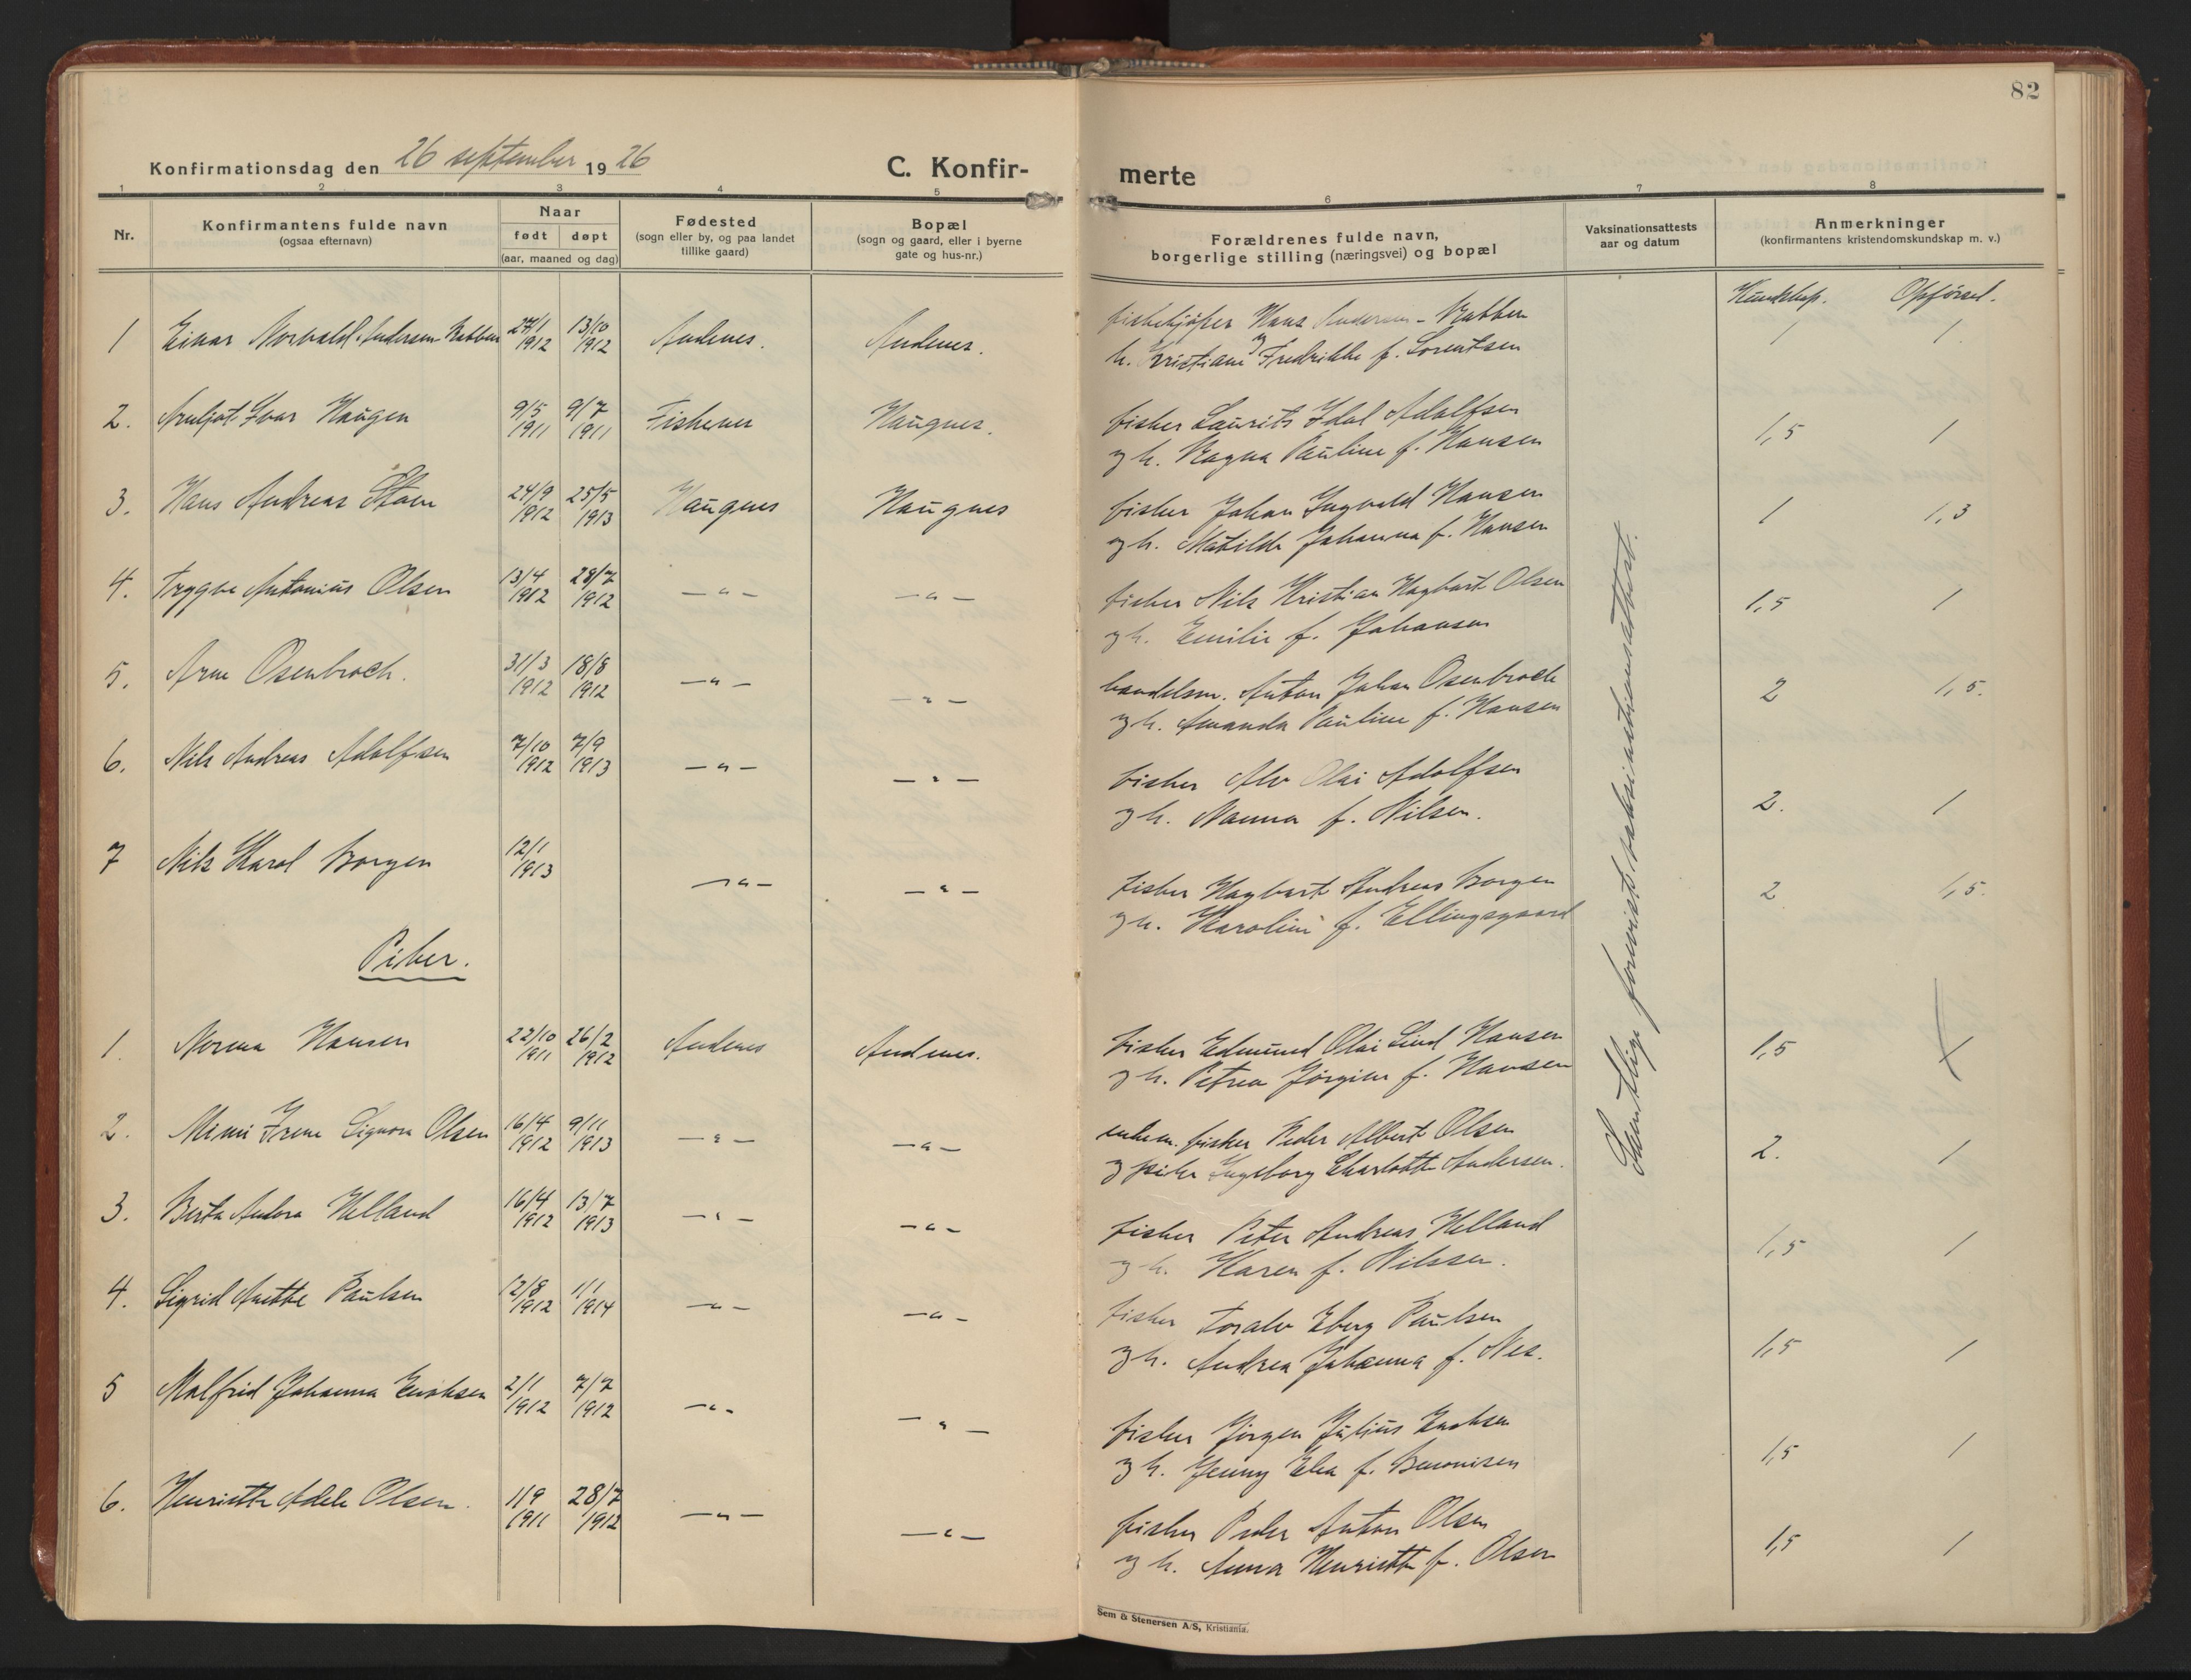 82
Konfirmationsdag den 26 september 1926
C. Konfir-
merte
1 2 3 4 5 6 7 8
Nr.
Konfirmantens fulde navn
(ogsaa efternavn)
Naar
født døpt
(aar, maaned og dag)
Fødested
(sogn eller by, og paa landet
tillike gaard)
Bopæl
(sogn og gaard, eller i byerne
gate og hus-nr.)
Forældrenes fulde navn,
borgerlige stilling (næringsvei) og bopæl
Vaksinationsattests
aar og datum
Anmerkninger
(konfirmantens kristendomskundskap m. v.)
Kundskap. Opførsel.
1 Einar Norvald Andersen Rabben 27/1 1912 13/10 1912 Andenes. Andenes.
fiskekjøper Hans Andersen-Rabben
og h. Kristiane Fredrikke f. Lorentsen
1 1.
2. Arnljot Ivar Haugen 9/5 1911 9/7 1911 Fiskenes Haugnes.
fisker Laurits Idal Adolfsen
og h. Ragna Pauline f. Hansen
1,5 1
3. Hans Andreas Støen 24/9 1912 25/5 1913 Haugnes Haugnes
fisker Johan Ingvald Hansen
og h. Matilde Johanna f. Hansen
1 1,3
4. Trygve Antonius Olsen 13/4 1912 28/7 1912 —"— —"—
fisher Nils Kristian Hagbart Olsen
og h. Emilie f. Johansen
1,5 1
5. Arne Osenbroch. 31/3 1912 18/8 1912 —"— —"—
handelsm. Anton Johan Osenbroch
og h. Amanda Pauline f. Hansen
2 1,5.
6. Nils Andreas Adolfsen 7/10 1912 7/9 1913 —"— —"—
fisker Alv Olai Adolfsen
og h. Nanna f. Nilsen.
2. 1
7 Nils Karol Borgen 12/1 1913 —"— —"—
fisker Hagbart Andreas Borgen
og h. Karoline f. Ellingsgaard
2 1,5.
Samtlige forevist vaksinationsattest.
Piker.
1. Norma Hansen 22/10 1911 26/2 1912 Andenes Andenes.
fisker Edmund Olai Lind Hansen
og h. Petrea Jørgine f. Hansen
1,5 1
2. Mimi Irene Signora Olsen 16/4 1912 9/11 1913 —"— —"—
enkem. fisker Peder Albert Olsen
og pike Ingeborg Charlotte Andersen.
2. 1
3. Berta Andora Helland 16/4 1912 13/7 1913 —"— —"—
fisker Peter Andreas Helland
og h. Karen f. Nilssen.
1,5 1
4. Sigrid Anette Paulsen 12/8 1912 1/1 1914 —"— —"—
fisker Toralv Eberg Paulsen
og h. Andrea Johanna f. Nes.
1,5 1
5 Malfrid Johanna Enoksen 2/1 1912 7/7 1912 —"— —"—
fisker Jørgen Julius Enoksen
og h. Jenny Elea f. Benonisen
1,5 1
6. Henriette Adele Olsen. 1/9 1911 28/7 1912 —"— —"—
fisker Peder Anton Olsen
og h. Anna Henriette f. Olsen
1,5 1
Sem & Stenersen A/S, Kristiania.